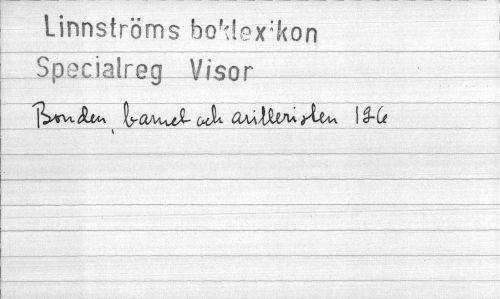 Linnströms boklexikon
Specialreg Visor
Bonden, barnet och arilleristen 126